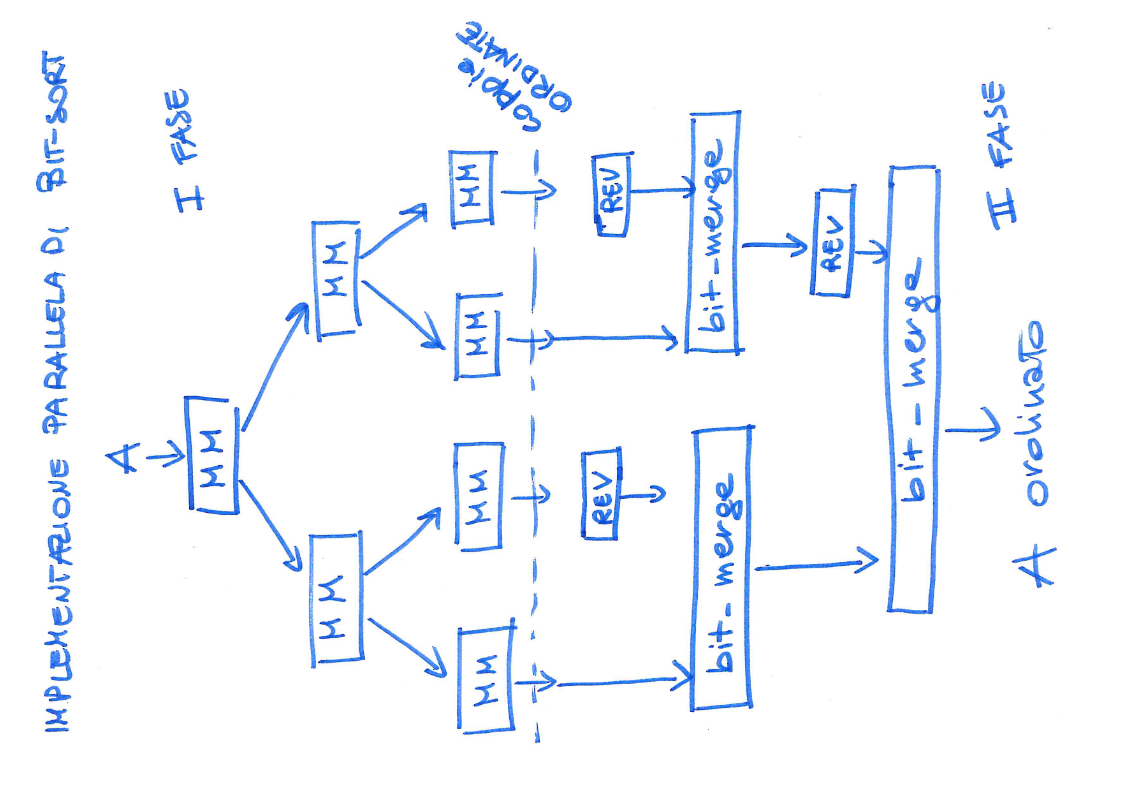 IMPLEMENTAZIONE PARALLELA DI BIT-SORT
A
I FASE
MM
MM
MM
MM
MM
MM
MM
coppie
ORDINATE
REV
REV
bit-merge
bit-merge
REV
bit-merge
A ordinato
II FASE